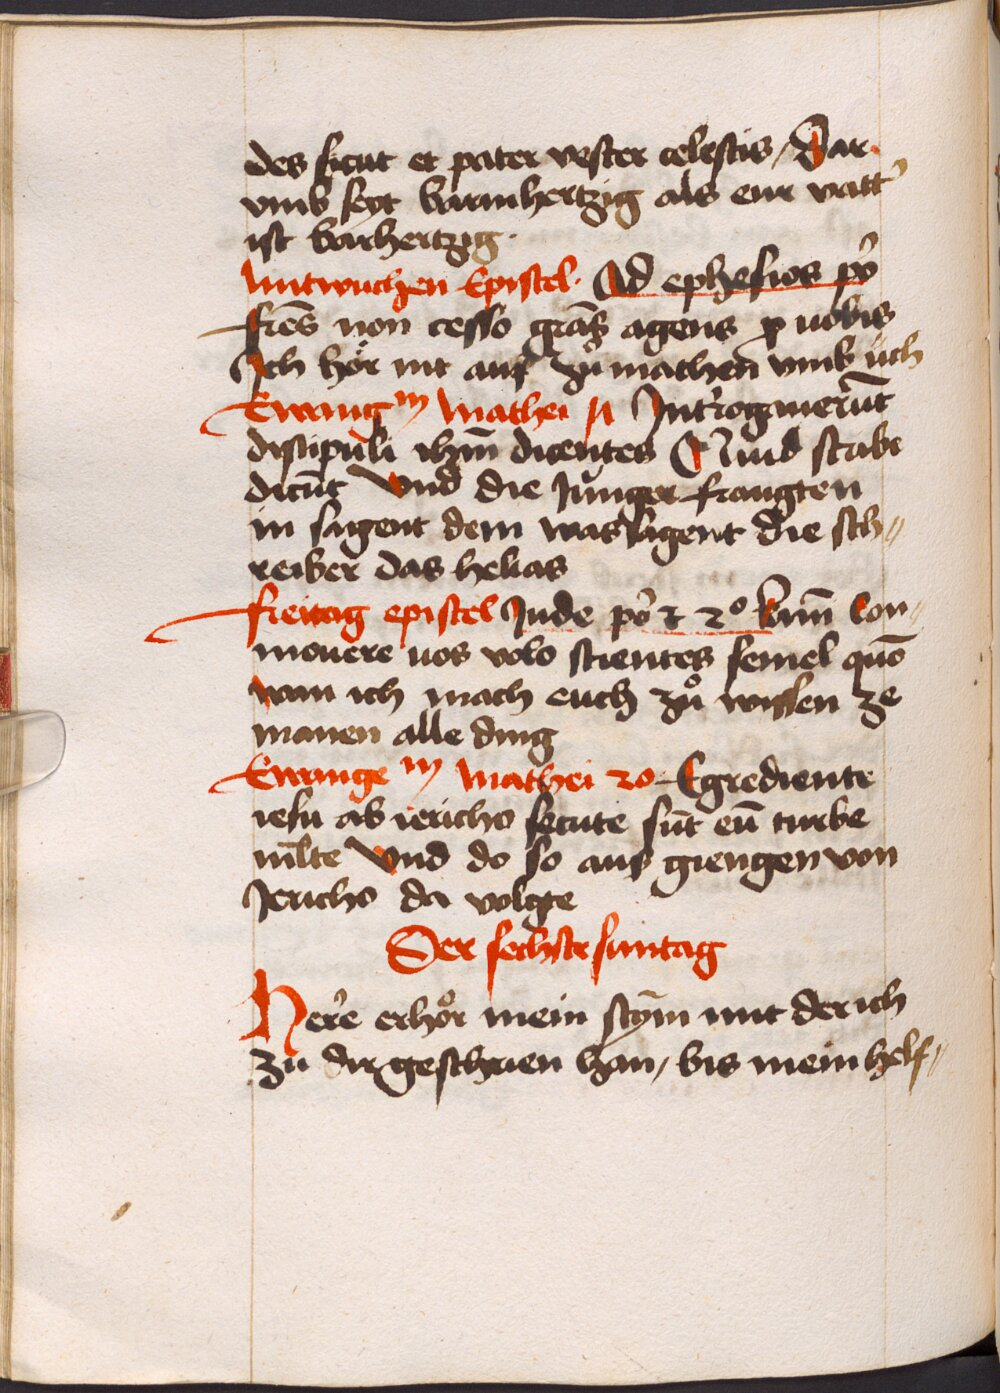 des sicut et pater vester celestis / Dar
vmb seyt barmhertzig als eur vatt᷑
ist barhertzig ·
Mitwuchen Epistel · Ad ephesios pͦ
fr̄es non cesso gr̄as agens ꝓ uobis
Ich hör nit auf zu machen vmb üch
Ewangm Mathei 17 Int᷑rogauerūt
discipuli ih̄m dicentes Quid scribe
dicūt Vnd die Junger fraugten
in sagent dem was sagent die sch〃
reiber das helias
freitag epistel Jude pͦ ⁊ 2o Cū Con〃
mouere uos volo scientes semel quō
wan ich mach euch zuͦ wissen ze
manen alle ding
Ewange m Mathei 20 Egrediente
iesu ab iericho secute sūt eū turbe
ml̄te Vnd do so aus giengen von
Jericho da volgte
Der sechste suntag
Here erhör mein stȳm mit der ich
zu dir geschrien han / bis mein helf〃